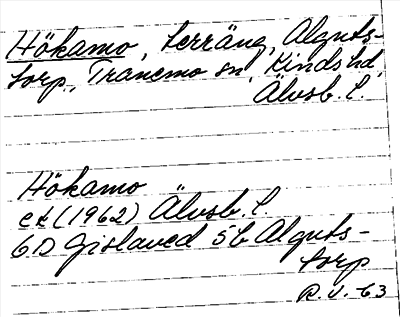 Hökamo, terräng, Älguts-
torp, Tranemo sn, Kinds hd,
Älvsb. l.
Hökamo
ek (1962) Älvsb. l
6D Gislaved 5b Älguts-
torp
R. J. 63